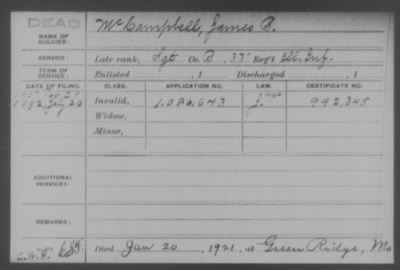 DEAD
NAME OF SOLDIER: McCampbell, James B.
SERVICE: Late rank, Sgt Co. B, 33" Reg't Ill. Inf.
TERM OF SERVICE: Enlisted , 1 Discharged , 1
DATE OF FILING. CLASS. APPLICATION NO. LAW. CERTIFICATE NO.
1892, July 20 Invalid, 1.080,643 992.345
Widow,
Minor,
ADDITIONAL SERVICES:
REMARKS:
C.W.R. Died Jan 20, 1921, at Green Ridge, Mo